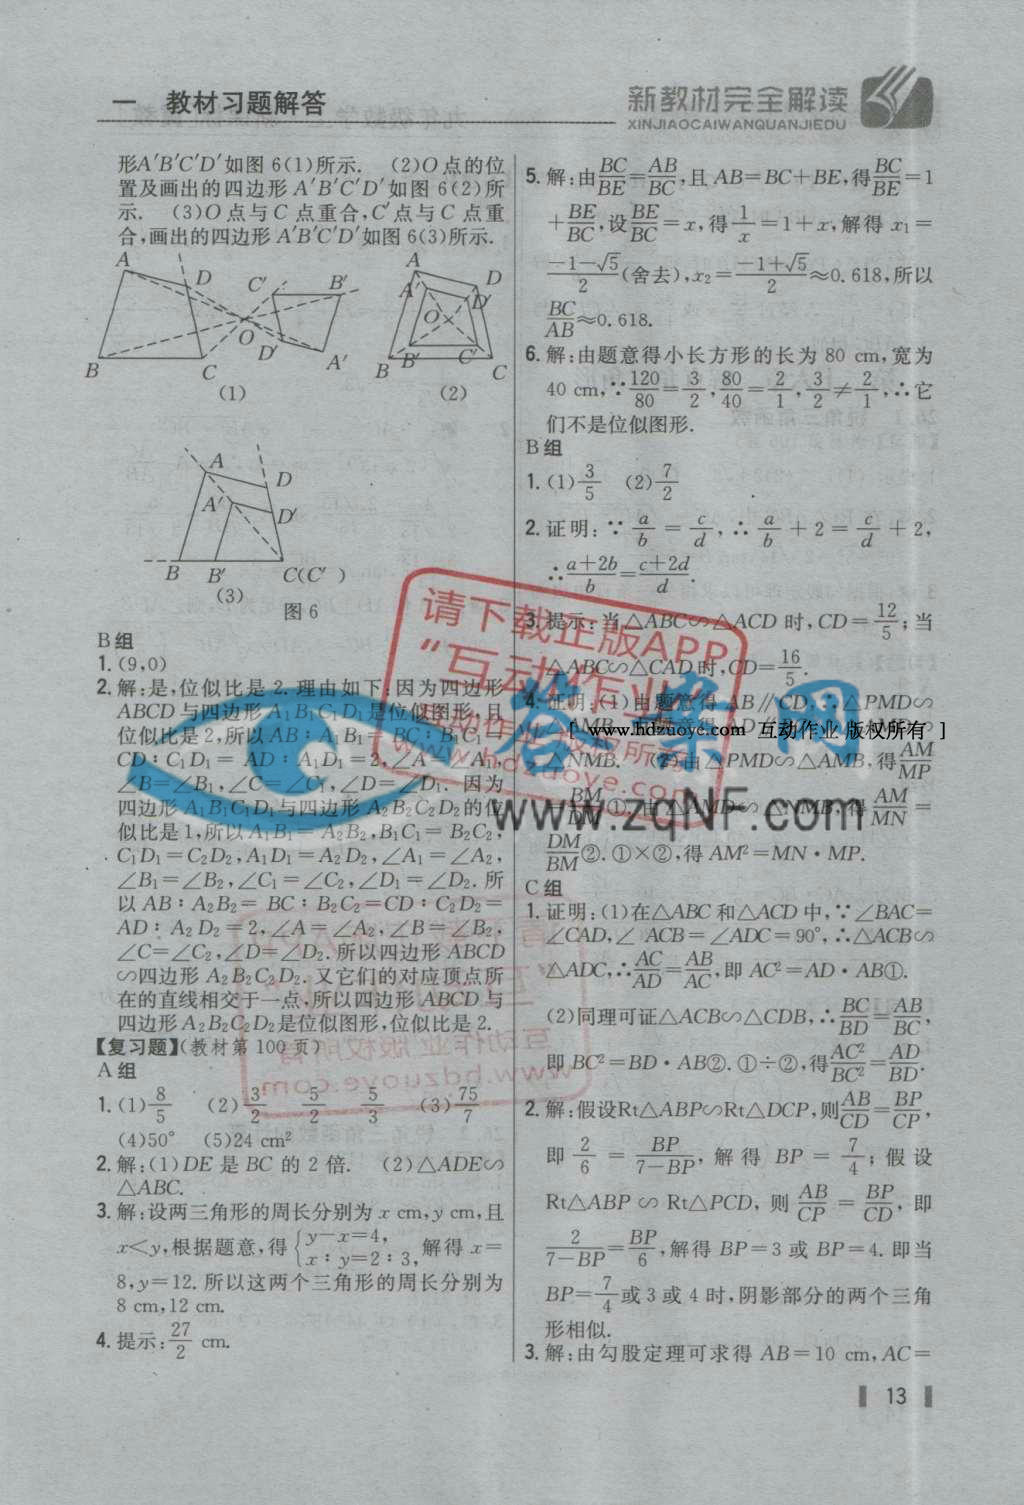 一 教材习题解答
新教材完全解读
XINJIAOCAIWANQUANJIEDU
形A′B′C′D′如图 6(1)所示. (2)O 点的位
置及画出的四边形 A′B′C′D′如图 6(2)所
示. (3)O 点与 C 点重合,C′点与 C 点重
合,画出的四边形 A′B′C′D′如图 6(3)所示.
A D C′ B′ O D′ A′ B C
(1)
A D A′ D′ O B B′ C′ C
(2)
A D A′ D′ B B′ C(C′)
(3)
图 6
B组
1. (9,0)
2. 解:是,位似比是 2. 理由如下:因为四边形
ABCD 与四边形 A₁B₁C₁D₁是位似图形,且
位似比是 2,所以 AB∶A₁B₁=BC∶B₁C₁=
CD∶C₁D₁=AD∶A₁D₁=2,∠A=∠A₁,
∠B=∠B₁,∠C=∠C₁,∠D=∠D₁. 因为
四边形 A₁B₁C₁D₁与四边形 A₂B₂C₂D₂的位
似比是 1,所以 A₁B₁=A₂B₂,B₁C₁=B₂C₂,
C₁D₁=C₂D₂,A₁D₁=A₂D₂,∠A₁=∠A₂,
∠B₁=∠B₂,∠C₁=∠C₂,∠D₁=∠D₂. 所
以 AB∶A₂B₂=BC∶B₂C₂=CD∶C₂D₂=
AD∶A₂D₂=2,∠A=∠A₂,∠B=∠B₂,
∠C=∠C₂,∠D=∠D₂. 所以四边形 ABCD
∽四边形 A₂B₂C₂D₂. 又它们的对应顶点所
在的直线相交于一点,所以四边形 ABCD 与
四边形 A₂B₂C₂D₂是位似图形,位似比是 2.
【复习题】(教材第 100 页)
A组
1. (1)8/5 (2)3/2 5/2 5/3 (3)75/7
(4)50° (5)24 cm²
2. 解:(1)DE 是 BC 的 2 倍. (2)△ADE∽
△ABC.
3. 解:设两三角形的周长分别为 x cm,y cm,且
x<y,根据题意,得{y−x=4, x∶y=2∶3, 解得 x=
8,y=12. 所以这两个三角形的周长分别为
8 cm,12 cm.
4. 提示:27/2 cm.
5. 解:由BC/BE=AB/BC,且 AB=BC+BE,得BC/BE=1
+BE/BC,设BE/BC=x,得1/x=1+x,解得 x₁=
(−1−√5)/2(舍去),x₂=(−1+√5)/2≈0.618,所以
BC/AB≈0.618.
6. 解:由题意得小长方形的长为 80 cm,宽为
40 cm,∵120/80=3/2,80/40=2/1,3/2≠2/1,∴它
们不是位似图形.
B组
1. (1)3/5 (2)7/2
2. 证明:∵a/b=c/d,∴a/b+2=c/d+2,
∴(a+2b)/b=(c+2d)/d.
3. 提示:当△ABC∽△ACD 时,CD=12/5;当
△ABC∽△CAD 时,CD=16/5.
4. 证明:(1)由题意得 AB∥CD,∴△PMD∽
△AMB.
△NMB. (2)由△PMD∽△AMB,得AM/MP
=BM/DM①. 由△AMD∽△NMB,得AM/MN=
DM/BM②. ①×②,得 AM²=MN·MP.
C组
1. 证明:(1)在△ABC 和△ACD 中,∵∠BAC=
∠CAD,∠ACB=∠ADC=90°,∴△ACB∽
△ADC,∴AC/AD=AB/AC,即 AC²=AD·AB①.
(2)同理可证△ACB∽△CDB,∴BC/BD=AB/BC,
即 BC²=BD·AB②. ①÷②,得AC²/BC²=AD/BD.
2. 解:假设Rt△ABP∽Rt△DCP,则AB/CD=BP/CP,
即 2/6=BP/(7−BP),解得 BP=7/4;假设
Rt△ABP∽Rt△PCD,则 AB/CP=BP/CD,即
2/(7−BP)=BP/6,解得 BP=3 或 BP=4. 即当
BP=7/4或 3 或 4 时,阴影部分的两个三角
形相似.
3. 解:由勾股定理可求得 AB=10 cm,AC=
13
请下载正版APP
“互动作业”
互动作业 版权所有
www.hdzuoye.com
[ www.hdzuoyc.com 互动作业 版权所有 ]
答案网
www.zqNF.com
互动作业 版权所有
www.hdzuoye.com